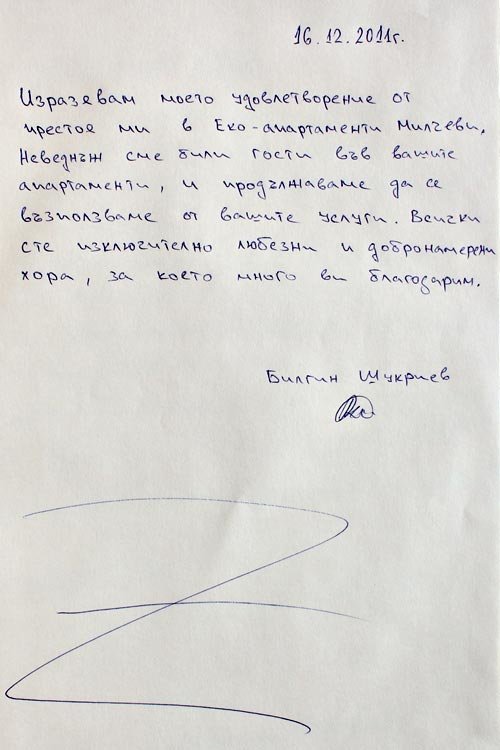 16.12.2011г.
Изразявам моето удовлетворение от
престоя ми в Еко-апартаменти Милчеви.
Неведнъж сме били гости във вашите
апартаменти, и продължаваме да се
възползваме от вашите услуги. Всички
сте изключително любезни и добронамерени
хора, за което много ви благодарим.
Билгин Шукриев